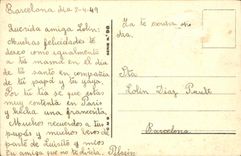 Barcelona día 2-4-49
Querida amiga Lolin:
Muchas felicidades te
deseo como igualmente a
tu mamá en el día
de tu santo en compañía
de tu papá y tu yaya.
Por tu tía se que estás
muy contenta en París
y hecha una francesita.
Muchos recuerdos a tus
papás y muchos besos de
parte de Luisito y míos
tu amiga que no te olvida.
Ya te
Sta
Lolin Diaz
Barcelona